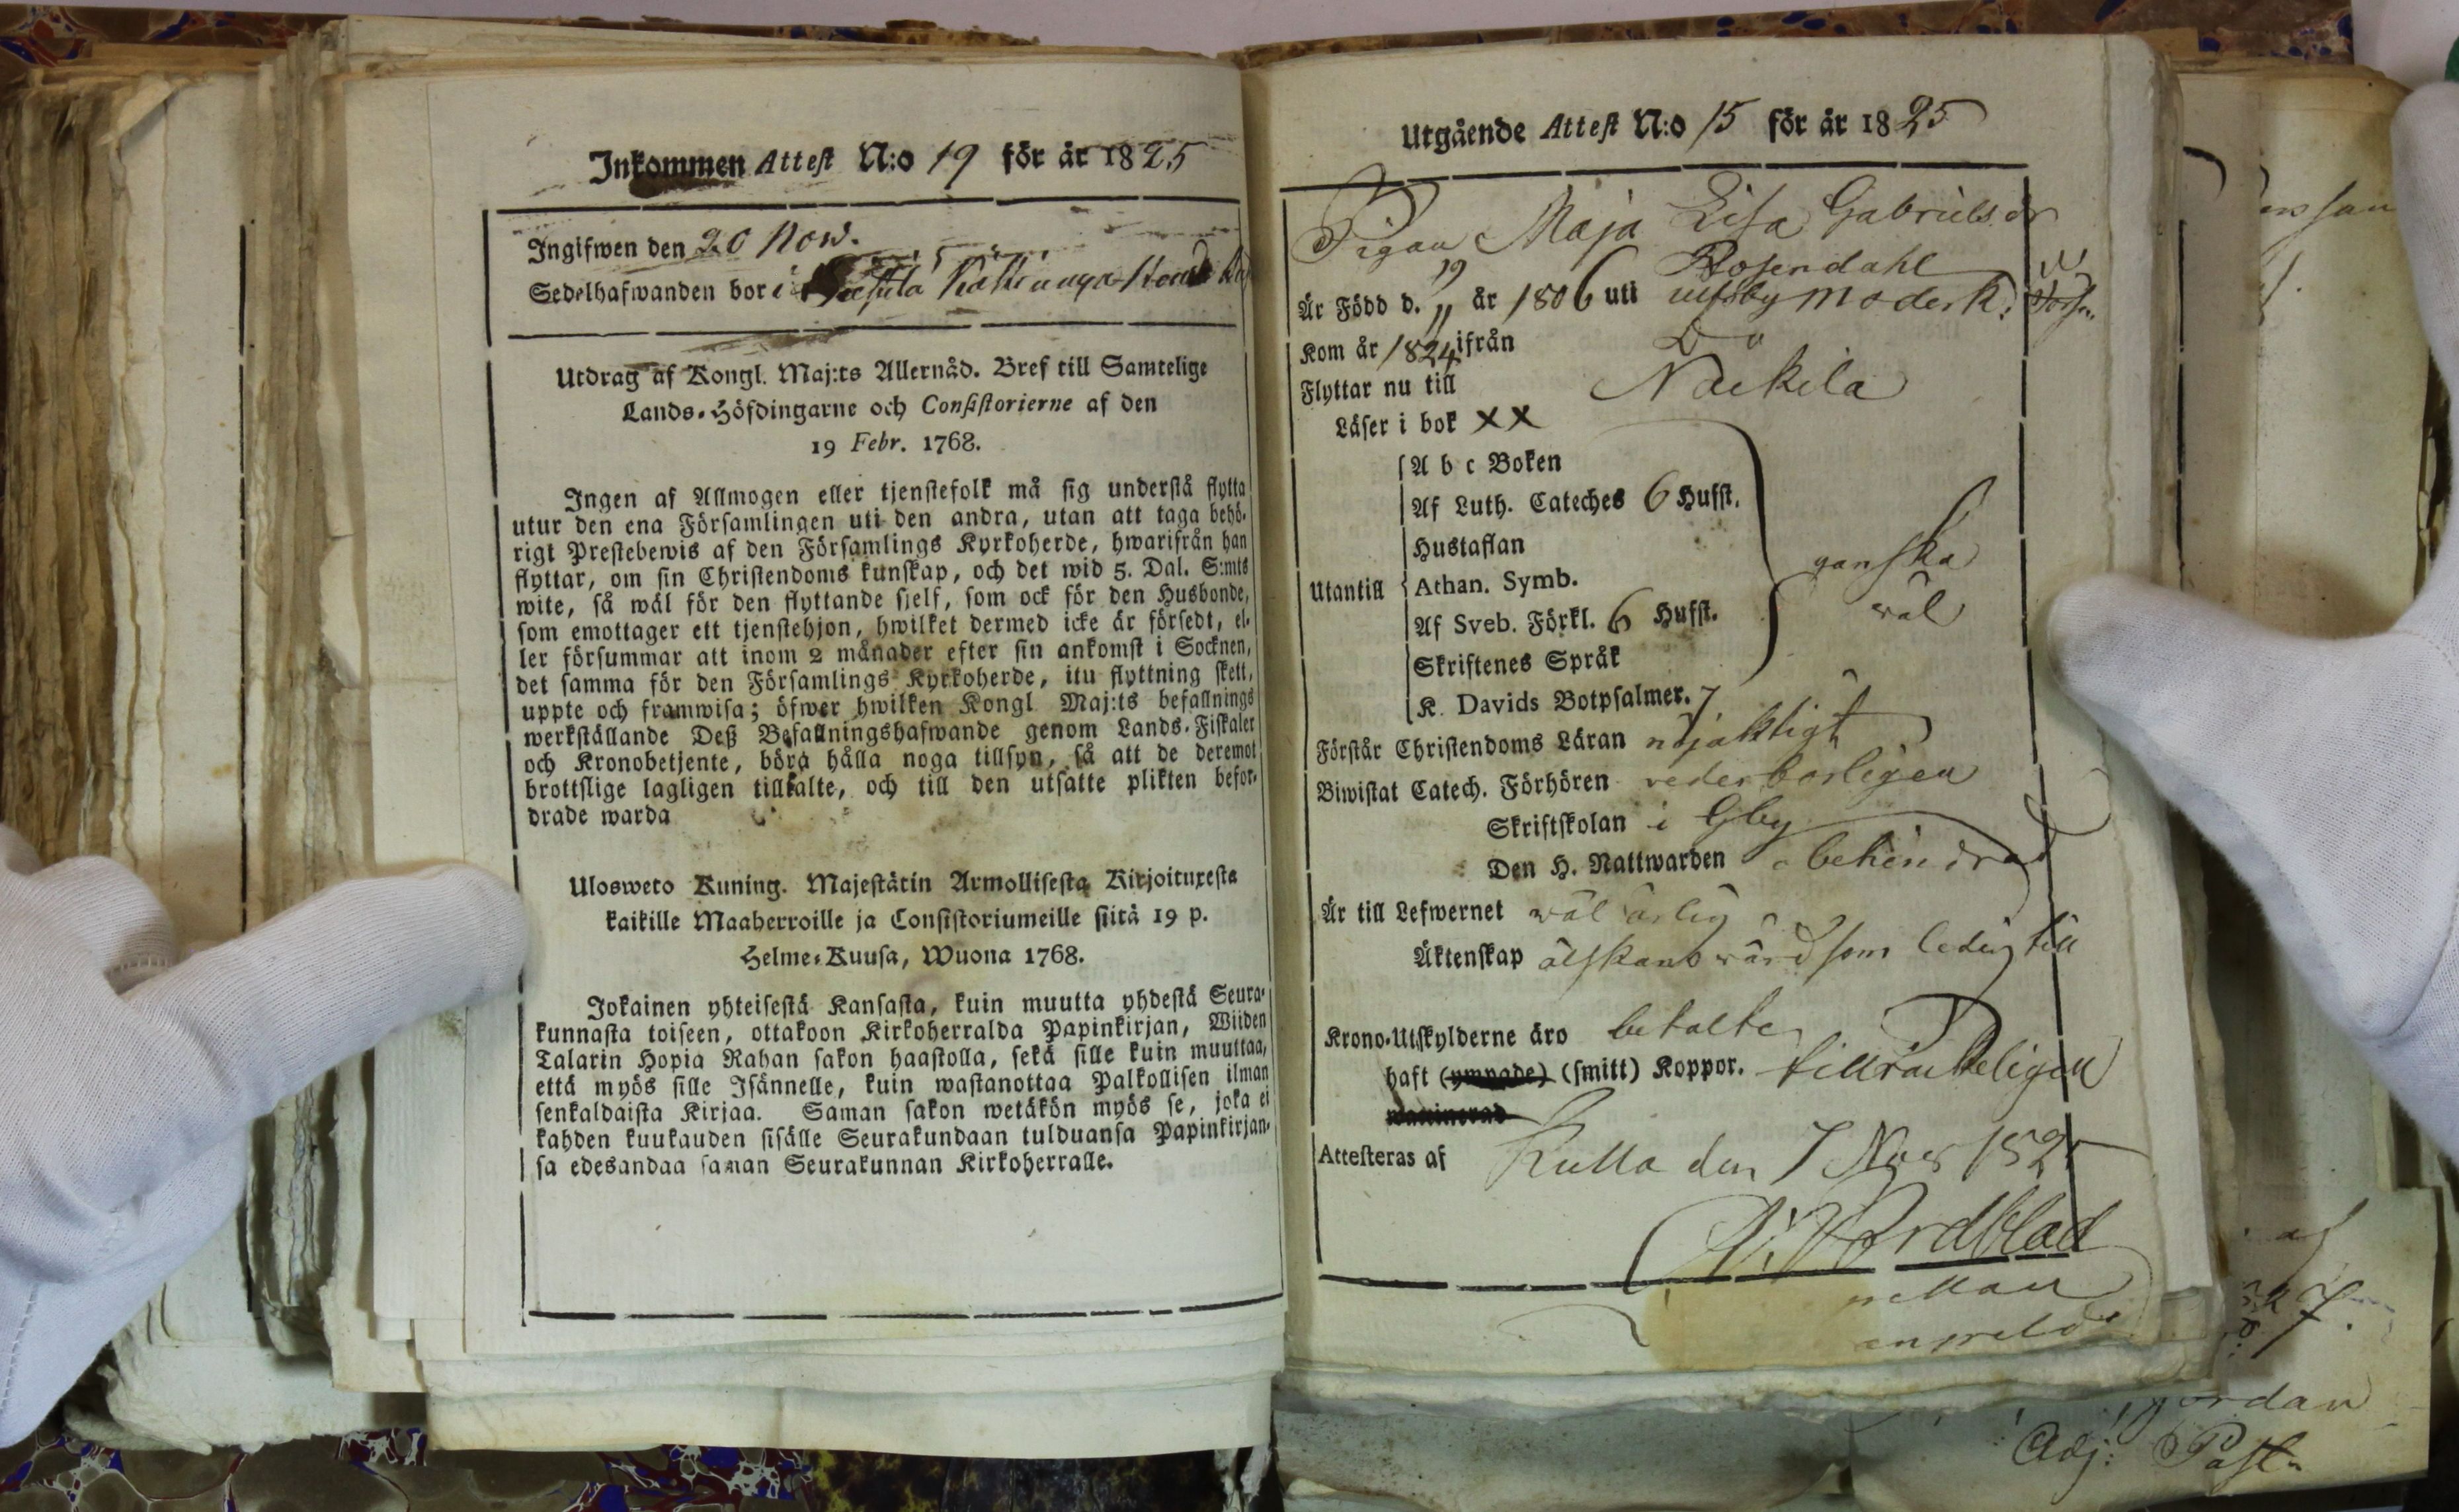 Inkommen Attest N:o 19 för år 1825
Ingifwen den 20 Nov.
Sedelhafwanden bor i
Utdrag af Kongl. Maj:ts Allernåd. Bref till Samtelige
Lands-Höfdingarne och Consistorierne af den
19 Febr. 1768.
Ingen af Allmogen eller tjenstefolk må sig understå flytta
utur den ena Församlingen uti den andra, utan att taga behö-
rigt Prestebewis af den Församlings Kyrkoherde, hwarifrån han
flyttar, om sin Christendoms kunskap, och det wid 5. Dal. S:mts
wite, så wäl för den flyttande sjelf, som ock för den Husbonde,
som emottager ett tjenstehjon, hwilket dermed icke är försedt, el-
ler försummar att inom 2 månader efter sin ankomst i Socknen,
det samma för den Församlings Kyrkoherde, itu flyttning skett,
uppte och framwisa; öfwer hwilken Kongl. Maj:ts befallnings
werkställande Deß Befallningshafwande genom Lands-Fiskaler
och Kronobetjente, böra hålla noga tillsyn, så att de deremot
brottslige lagligen tilltalte, och till den utsatte plikten befor-
drade warda
Ulosweto Kuning. Majestätin Armollisesta Kirjoituxesta
kaikille Maaherroille ja Consistoriumeille siitä 19 p.
Helme-Kuusa, Wuona 1768.
Jokainen yhteisestä Kansasta, kuin muutta yhdestä Seura-
kunnasta toiseen, ottakoon Kirkoherralda Papinkirjan, Wiiden
Talarin Hopia Rahan sakon haastolla, sekä sille kuin muuttaa,
että myös sille Isännelle, kuin wastanottaa Palkollisen ilman
senkaldaista Kirjaa. Saman sakon wetäkön myös se, joka ei
kahden kuukauden sisälle Seurakundaan tulduansa Papinkirjan-
sa edesandaa saman Seurakunnan Kirkoherralle.
Utgående Attest N:o 15 för år 1825
Pigan Maja Lisa Gabrielsdr
Rosendahl
Är Född d. 19/11 år 1806 uti Ulfsby Moderk:
Kom år 1824 ifrån Do
Flyttar nu till Nackila
Läser i bok XX
A b c Boken
Af Luth. Cateches 6 Hufst.
Hustaflan
Utantill Athan. Symb. ganska
Af Sveb. Förkl. 6 Hufst. wäl
Skriftenes Språk
K. Davids Botpsalmer. 7
Förstår Christendoms Läran nöjaktigt
Biwistat Catech. Förhören vederborligen
Skriftskolan i Gby
Den H. Nattwarden obehindrad
Är till Lefwernet wäl ärlig
Äktenskap älskansvärd som ledig till
Krono-Utskylderne äro betalte
haft (ympade) (smitt) Koppor. tillräckeligen
Attesteras af Kulla den 7 Nov 1825
Nordblad
Adj: Past.